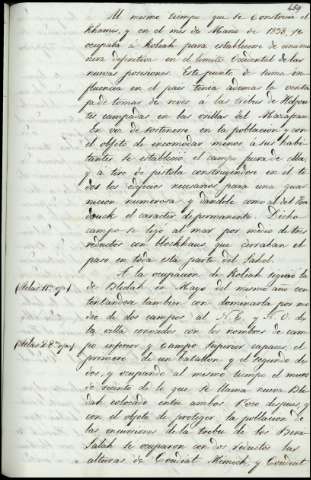 Al mismo tiempo que se construia el
khamis, y en el mes de Marzo de 1838, se
ocupaba á Koleah para establecerse de una ma
nera definitiva en el limite Occidental de las
nuevas posesiones. Este punto de suma in
fluencia en el pais tenia ademas la venta
ja de tomar de reves á las tribus de
tas campadas en las orillas del Mazafran
En vez de sostenerse en la poblacion y con
el objeto de incomodar menos á sus habi
tantes se estableció el campo fuera de ella,
y á tiro de pistola construyendose en el to
dos los edificios necesarios para una guar
nicion numerosa, y dandole como al del Fon
douck el caracter de permanente. Dicho
campo se ligó al mar por medio de tres
reductos con blockhaus, que cerraban el
paso en toda esta parte del Sahel.
A la ocupacion de Koleah siguió la
de Blidah en Mayo del mismo año con
tentandose tambien con dominarla por me
dio de dos campos al N.E. y N.O. de
la villa conocidos con los nombres de cam
po inferior y Campo Superior capaces, el
primero de un batallon y el segundo de
dos, y ocupando al mismo tiempo el mura
do recinto de lo que se llama nueva Bli
dah colocado entre ambos. Poco despues y
con el objeto de proteger la poblacion de
las incursiones de la tribu de los Beni
Salah se ocuparon con dos reductos las
alturas de Coudiat Mimich, y Coudiat